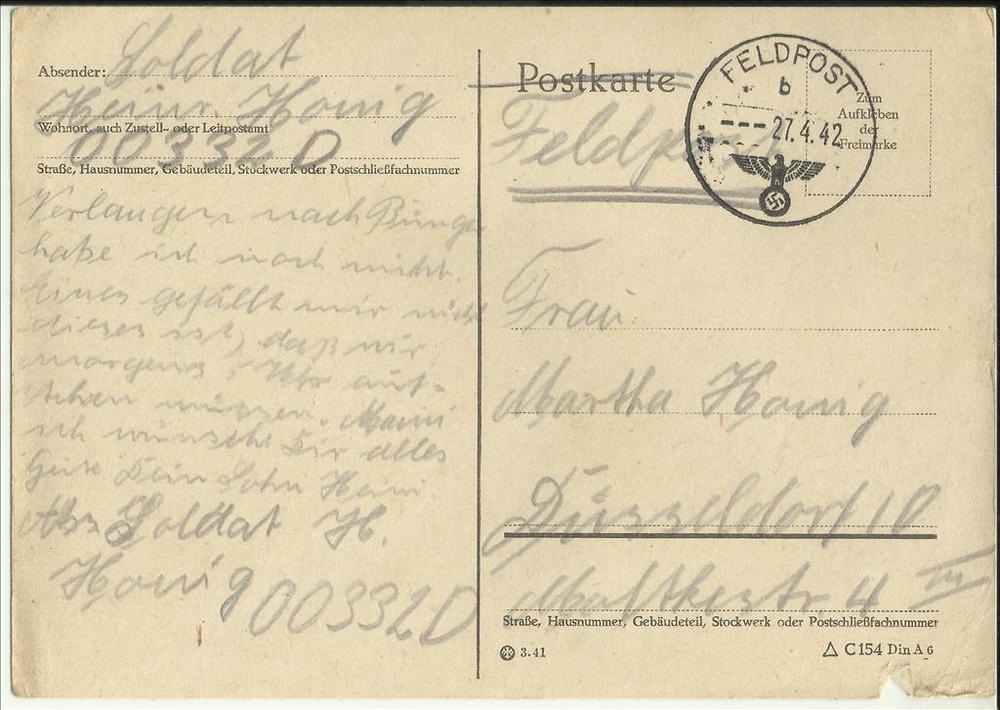 Absender: Soldat
Heinr. Honig
Wohnort, auch Zustell- oder Leitpostamt
00332 D
Straße, Hausnummer, Gebäudeteil, Stockwerk oder Postschließfachnummer
Verlangen nach
habe ich noch nicht.
Eines gefällt mir nicht
dieses ist, daß wir
morgens Uhr auf-
stehen müssen. Mami
ich wünsche Dir alles
Gute Dein Sohn Heini.
Abs Soldat H.
Honig 00332 D
Postkarte
Feldpost
FELDPOST
b
---27.4.42
Zum
Aufkleben
der
Freimarke
Frau
Martha Honig
Düsseldorf 10
Moltkestr. 4 III
Straße, Hausnummer, Gebäudeteil, Stockwerk oder Postschließfachnummer
3.41
C 154 Din A 6